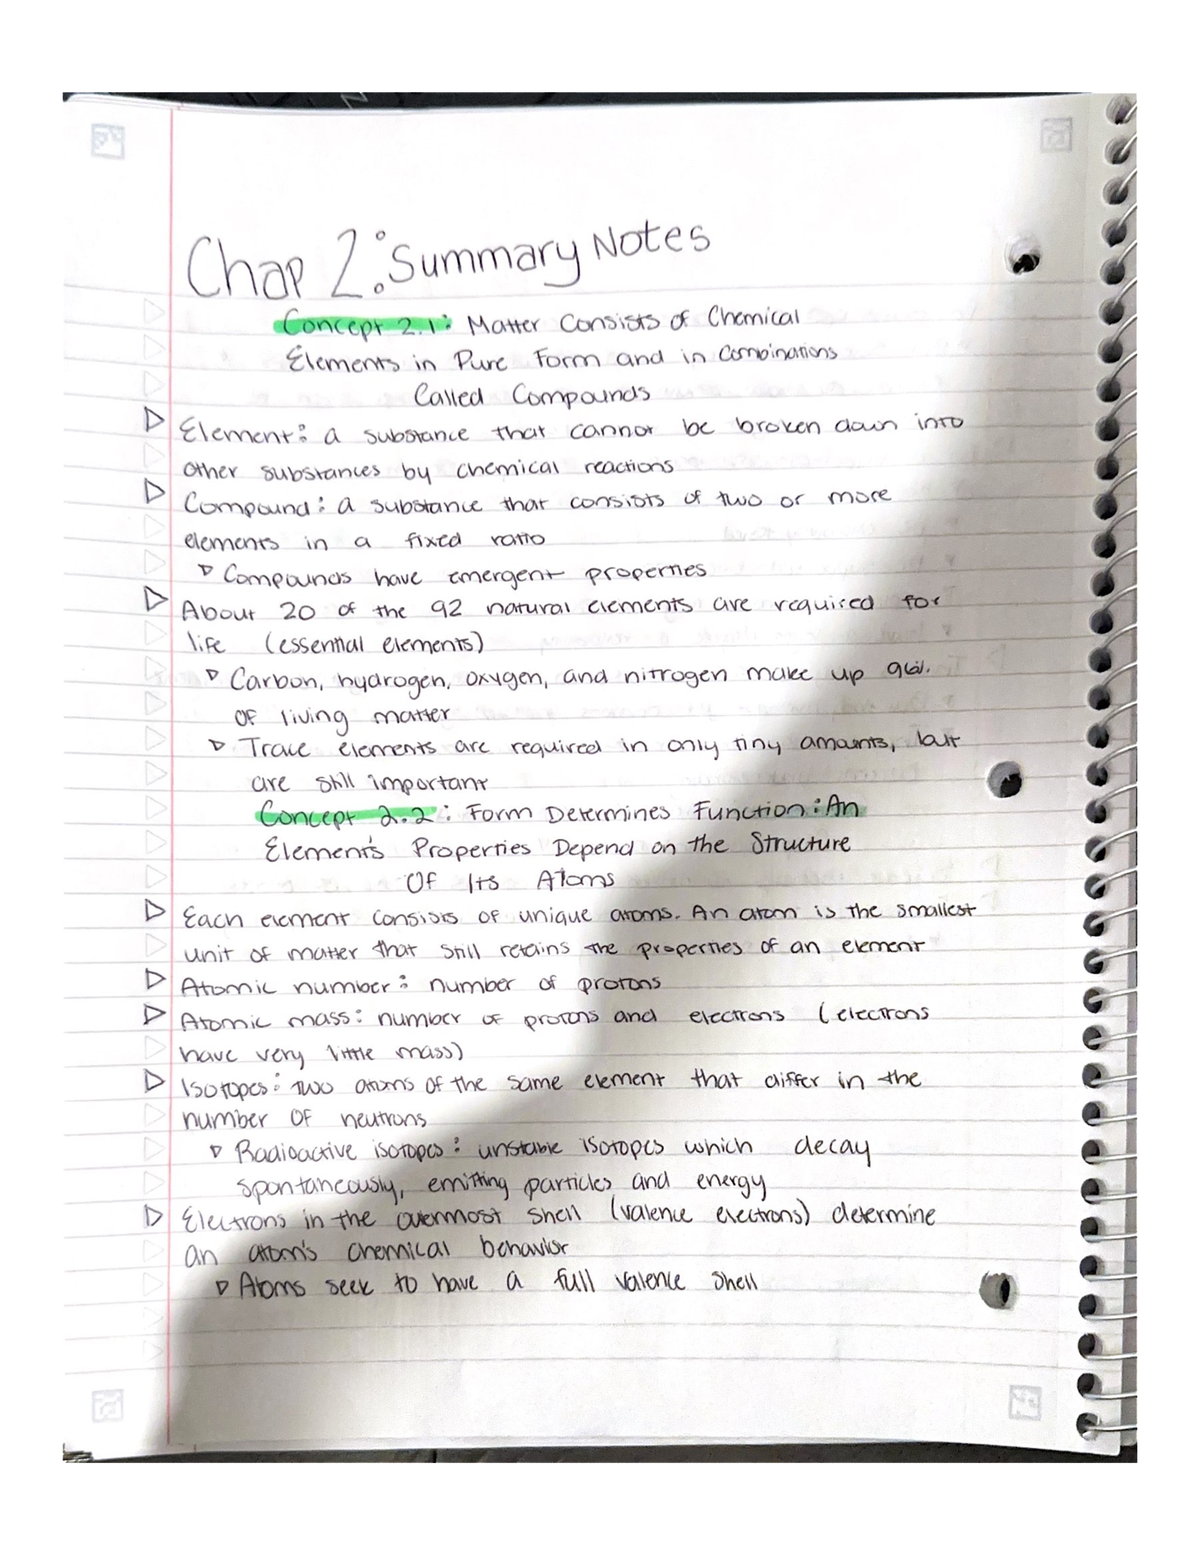 Chap 2: Summary Notes
Concept 2.1: Matter Consists of Chemical
Elements in Pure Form and in Combinations
Called Compounds
Element: a substance that cannot be broken down into
other substances by chemical reactions
Compound: a substance that consists of two or more
elements in a fixed ratio
Compounds have emergent properties
About 20 of the 92 natural elements are required for
life (essential elements)
Carbon, hydrogen, oxygen, and nitrogen make up 96%
of living matter
Trace elements are required in only tiny amounts, but
are still important
Concept 2.2: Form Determines Function: An
Element's Properties Depend on the Structure
Of Its Atoms
Each element consists of unique atoms. An atom is the smallest
unit of matter that still retains the properties of an element
Atomic number: number of protons
Atomic mass: number of protons and electrons (electrons
have very little mass)
Isotopes: two atoms of the same element that differ in the
number of neutrons
Radioactive isotopes: unstable isotopes which decay
spontaneously, emitting particles and energy
Electrons in the outermost shell (valence electrons) determine
an atom's chemical behavior
Atoms seek to have a full valence shell